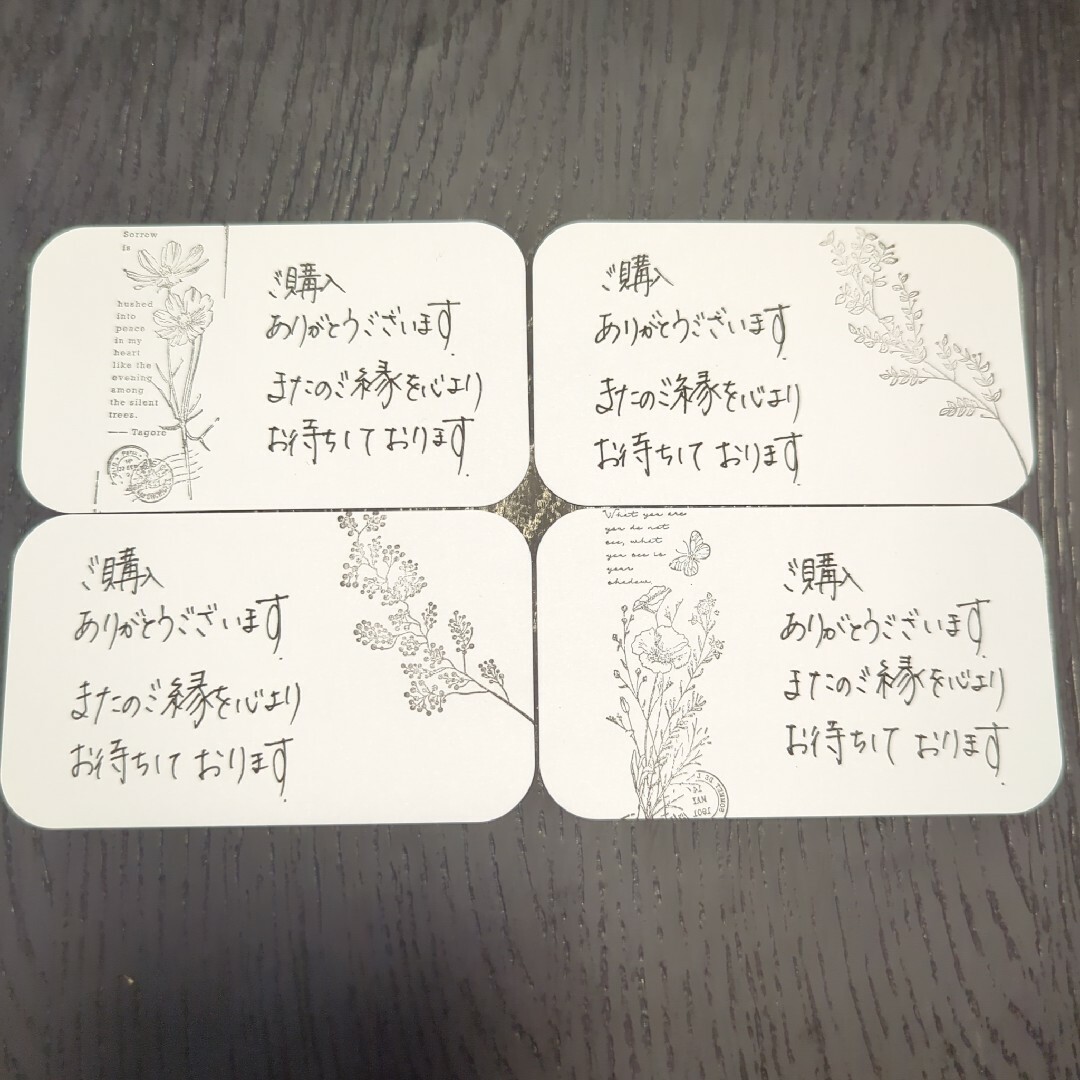 Sorrow
is
hushed
into
peace
in my
heart
like the
evening
among
the silent
trees.
—— Tagore
ご購入
ありがとうございます.
またのご縁を心より
お待ちして おります.
ご購入
ありがとうございます.
またのご縁を心より
お待ちして おります.
ご購入
ありがとうございます.
またのご縁を心より
お待ちして おります.
What you are
you do not
see, what
you see is
your
shadow.
ご購入
ありがとうございます.
またのご縁を心より
お待ちして おります.